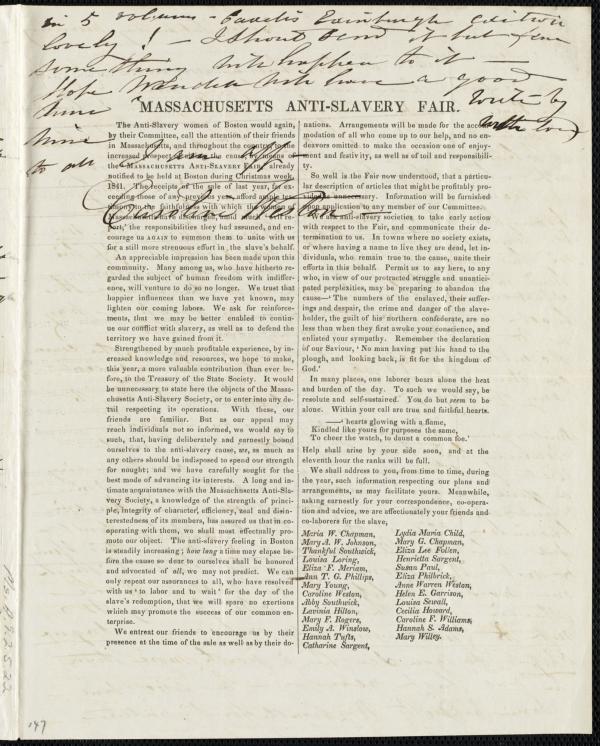 in 5 volumes - Cadell's Edinburgh edition
lovely! - I should send it but fear
something will happen to it -
Hope Wendell will have a good
time
Write by
with love
to all
MASSACHUSETTS ANTI-SLAVERY FAIR.
The Anti-Slavery women of Boston would again,
by their Committee, call the attention of their friends
in Massachusetts, and throughout the country, to the
increased prospect of the cause by means of
the MASSACHUSETTS ANTI-SLAVERY FAIR, already
notified to be held at Boston during Christmas week,
1841. The receipts of the sale of last year, far ex-
ceeding those of any previous year, afford ample tes-
timony to the faithfulness with which the women of
Massachusetts
port,' the responsibilities they had assumed, and en-
courage us AGAIN to summon them to unite with us
for a still more strenuous effort in the slave's behalf.
An appreciable impression has been made upon this
community. Many among us, who have hitherto re-
garded the subject of human freedom with indiffer-
ence, will venture to do so no longer. We trust that
happier influences than we have yet known, may
lighten our coming labors. We ask for reinforce-
ments, that we may be better enabled to contin-
ue our conflict with slavery, as well as to defend the
territory we have gained from it.
Strengthened by much profitable experience, by in-
creased knowledge and resources, we hope to make,
this year, a more valuable contribution than ever be-
fore, to the Treasury of the State Society. It would
be unnecessary to state here the objects of the Massa-
chusetts Anti-Slavery Society, or to enter into any de-
tail respecting its operations. With these, our
friends are familiar. But as our appeal may
reach individuals not so informed, we would say to
such, that, having deliberately and earnestly bound
ourselves to the anti-slavery cause, we, as much as
any others should be indisposed to spend our strength
for nought; and we have carefully sought for the
best mode of advancing its interests. A long and in-
timate acquaintance with the Massachusetts Anti-Sla-
very Society, a knowledge of the strength of princi-
ple, integrity of character, efficiency, zeal and disin-
terestedness of its members, has assured us that in co-
operating with them, we shall most effectually pro-
mote our object. The anti-slavery feeling in Boston
is steadily increasing; how long a time may elapse be-
fore the cause so dear to ourselves shall be honored
and advocated of all, we may not predict. We can
only repeat our assurances to all, who have resolved
with us 'to labor and to wait' for the day of the
slave's redemption, that we will spare no exertions
which may promote the success of our common en-
terprise.
We entreat our friends to encourage us by their
presence at the time of the sale as well as by their do-
nations. Arrangements will be made for the accom-
modation of all who come up to our help, and no en-
deavors omitted to make the occasion one of enjoy-
ment and festivity, as well as of toil and responsibili-
ty.
So well is the Fair now understood, that a particu-
lar description of articles that might be profitably pro-
vided is unnecessary. Information will be furnished
upon application to any member of our Committee.
anti-slavery societies, to take early action
with respect to the Fair, and communicate their de-
termination to us. In towns where no society exists,
or where having a name to live they are dead, let in-
dividuals, who remain true to the cause, unite their
efforts in this behalf. Permit us to say here, to any
who, in view of our protracted struggle and unantici-
pated perplexities, may be preparing to abandon the
cause—'The numbers of the enslaved, their suffer-
ings and despair, the crime and danger of the slave-
holder, the guilt of his northern confederate, are no
less than when they first awoke your conscience, and
enlisted your sympathy. Remember the declaration
of our Saviour, 'No man having put his hand to the
plough, and looking back, is fit for the kingdom of
God.'
In many places, one laborer bears alone the heat
and burden of the day. To such we would say, be
resolute and self-sustained. You do but seem to be
alone. Within your call are true and faithful hearts.
——'hearts glowing with a flame,
Kindled like yours for purposes the same,
To cheer the watch, to daunt a common foe.'
Help shall arise by your side soon, and at the
eleventh hour the ranks will be full.
We shall address to you, from time to time, during
the year, such information respecting our plans and
arrangements, as may facilitate yours. Meanwhile,
asking earnestly for your correspondence, co-opera-
tion and advice, we are affectionately your friends and
co-laborers for the slave,
Maria W. Chapman,
Mary A. W. Johnson,
Thankful Southwick,
Louisa Loring,
Eliza F. Meriam,
Ann T. G. Phillips,
Mary Young,
Caroline Weston,
Abby Southwick,
Lavinia Hilton,
Mary F. Rogers,
Emily A. Winslow,
Hannah Tufts,
Catharine Sargent,
Lydia Maria Child,
Mary G. Chapman,
Eliza Lee Follen,
Henrietta Sargent,
Susan Paul,
Eliza Philbrick,
Anne Warren Weston,
Helen E. Garrison,
Louisa Sewall,
Cecilia Howard,
Caroline F. Williams,
Hannah S. Adams,
Mary Willey.
147